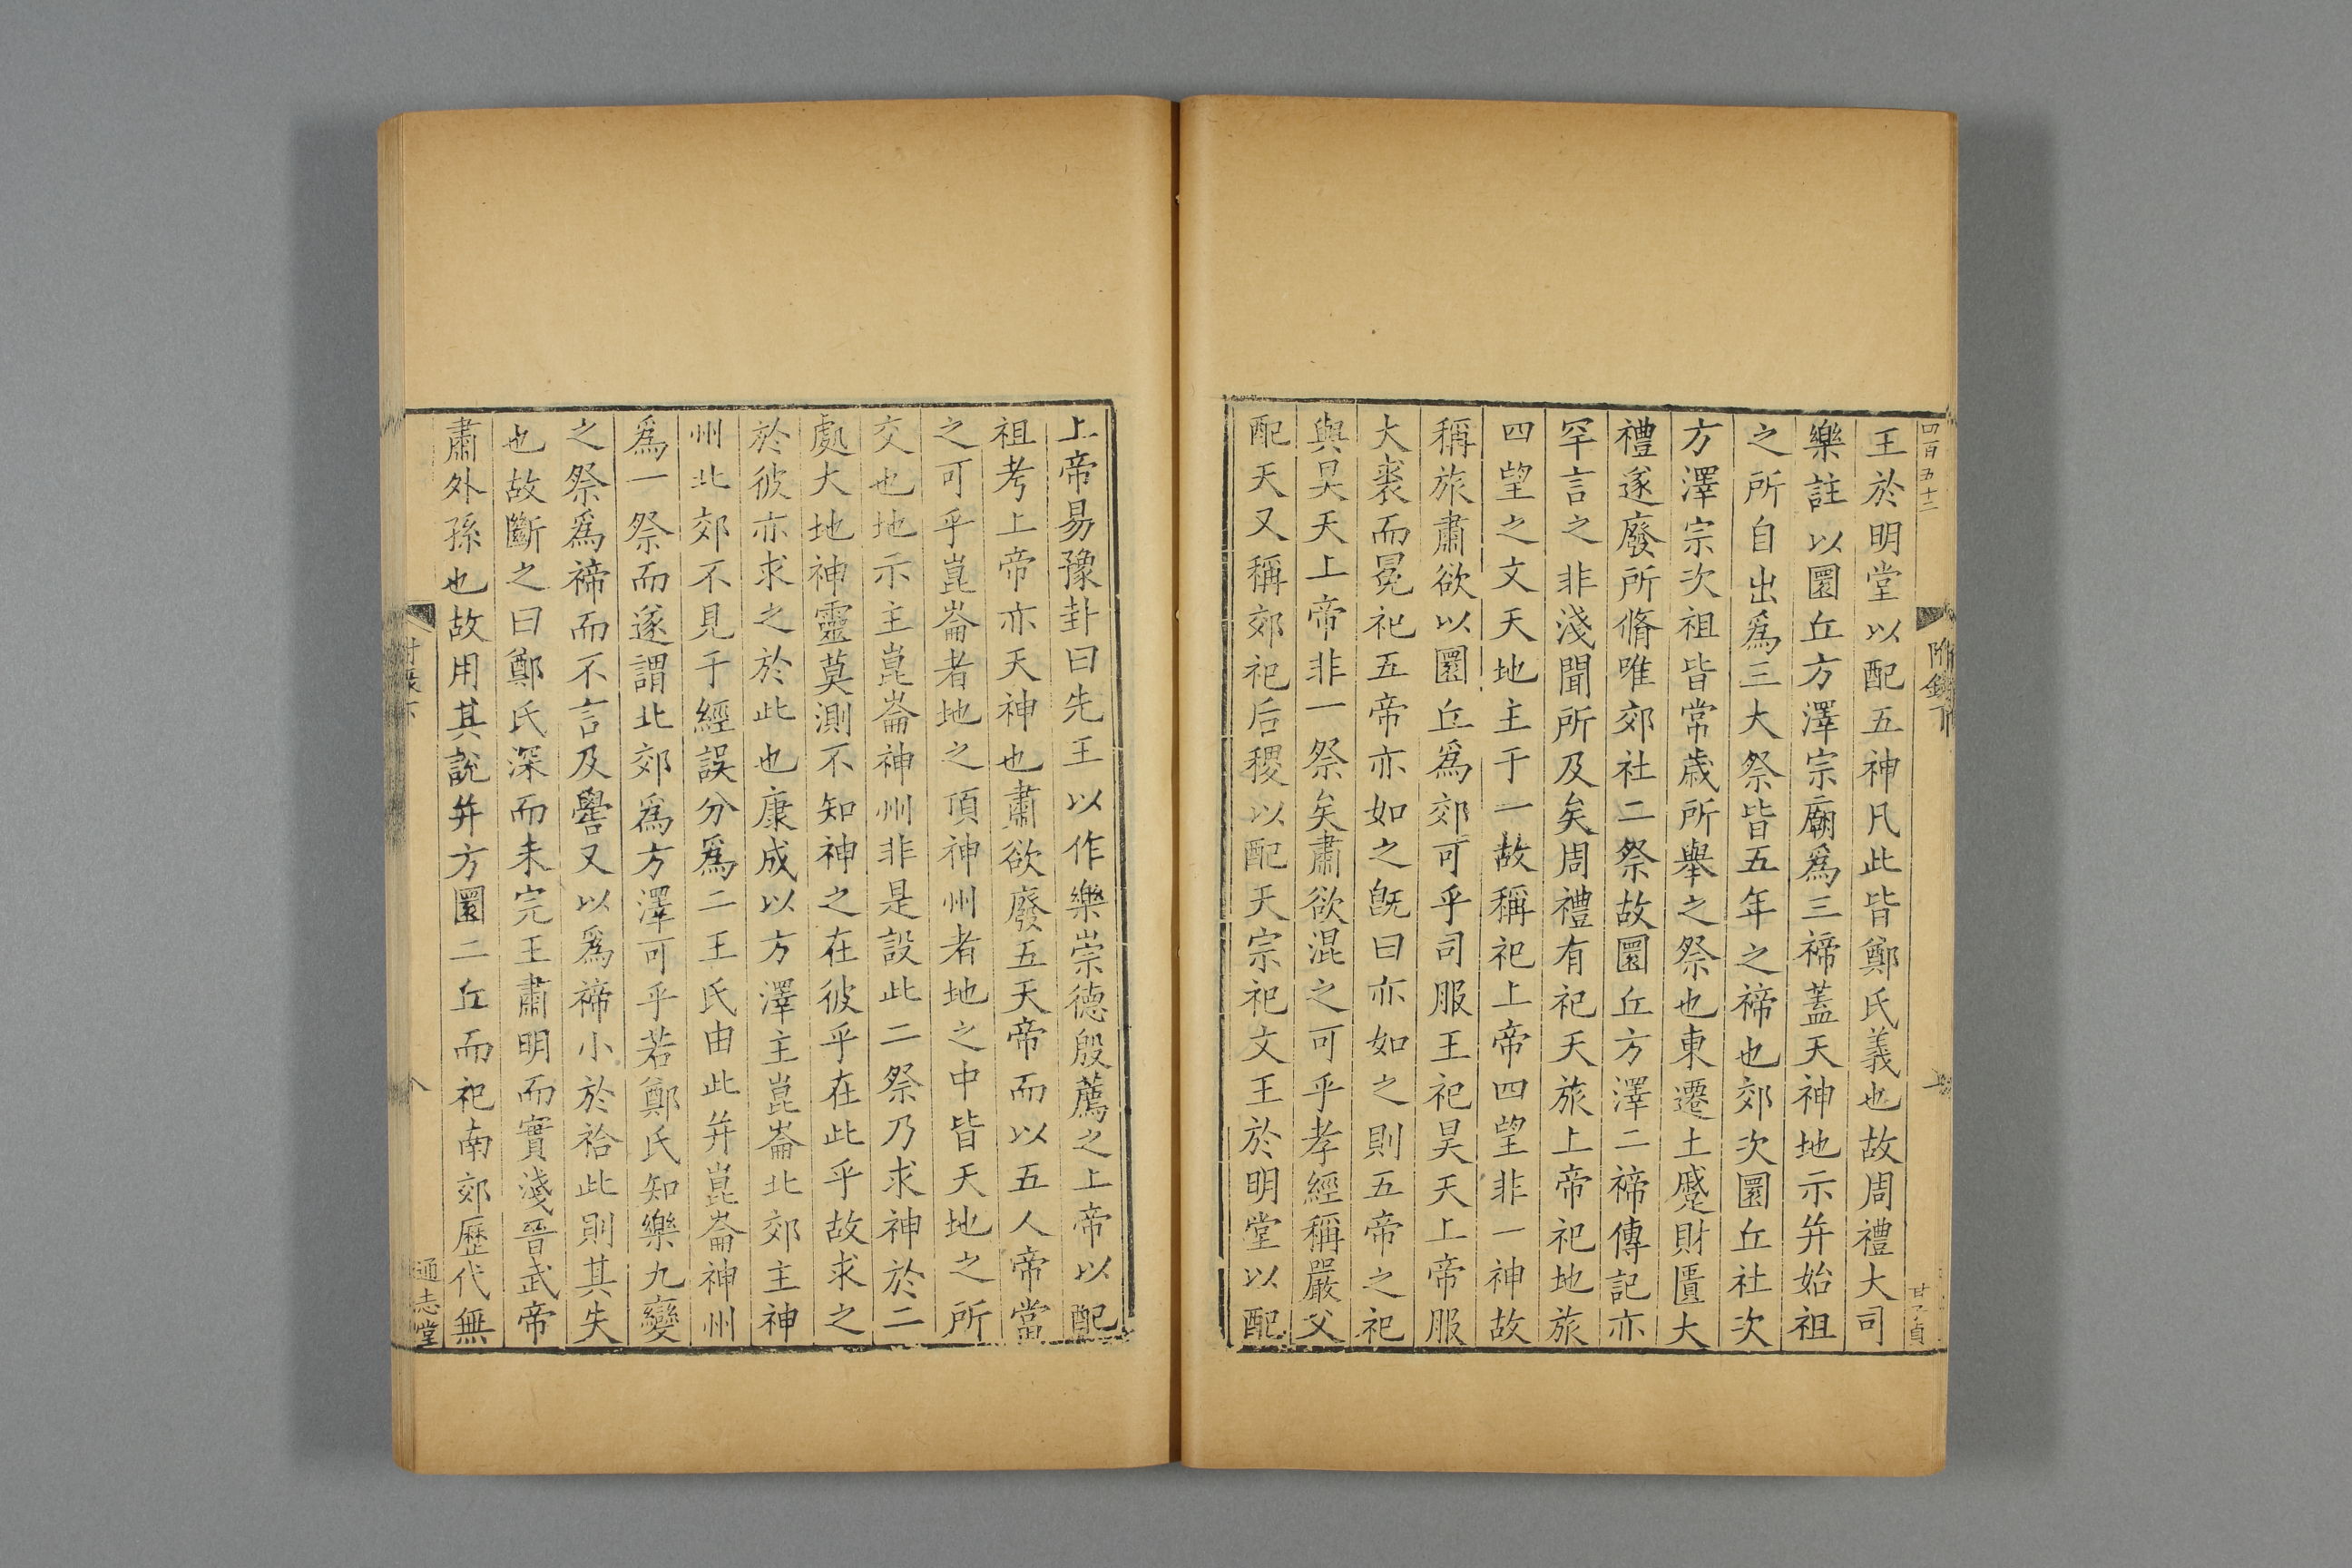 四百五十二
附錄下
王於明堂以配五神凡此皆鄭氏義也故周禮大司
樂註以圜丘方澤宗廟爲三禘蓋天神地示幷始祖
之所自出爲三大祭皆五年之禘也郊次圜丘社次
方澤宗次祖皆常歲所舉之祭也東遷土蹙財匱大
禮遂廢所脩唯郊社二祭故圜丘方澤二禘傳記亦
罕言之非淺聞所及矣周禮有祀天旅上帝祀地旅
四望之文天地主于一故稱祀上帝四望非一神故
稱旅肅欲以圜丘爲郊可乎司服王祀昊天上帝服
大裘而冕祀五帝亦如之旣曰亦如之則五帝之祀
與昊天上帝非一祭矣肅欲混之可乎孝經稱嚴父
配天又稱郊祀后稷以配天宗祀文王於明堂以配
上帝易豫卦曰先王以作樂崇德殷薦之上帝以配
祖考上帝亦天神也肅欲廢五天帝而以五人帝當
之可乎崑崙者地之頂神州者地之中皆天地之所
交也地示主崑崙神州非是設此二祭乃求神於二
處大地神靈莫測不知神之在彼乎在此乎故求之
於彼亦求之於此也康成以方澤主崑崙北郊主神
州北郊不見于經誤分爲二王氏由此幷崑崙神州
爲一祭而遂謂北郊爲方澤可乎若鄭氏知樂九變
之祭爲禘而不言及嚳又以爲禘小於祫此則其失
也故斷之曰鄭氏深而未完王肅明而實淺晉武帝
肅外孫也故用其說幷方圜二丘而祀南郊歷代無
通志堂